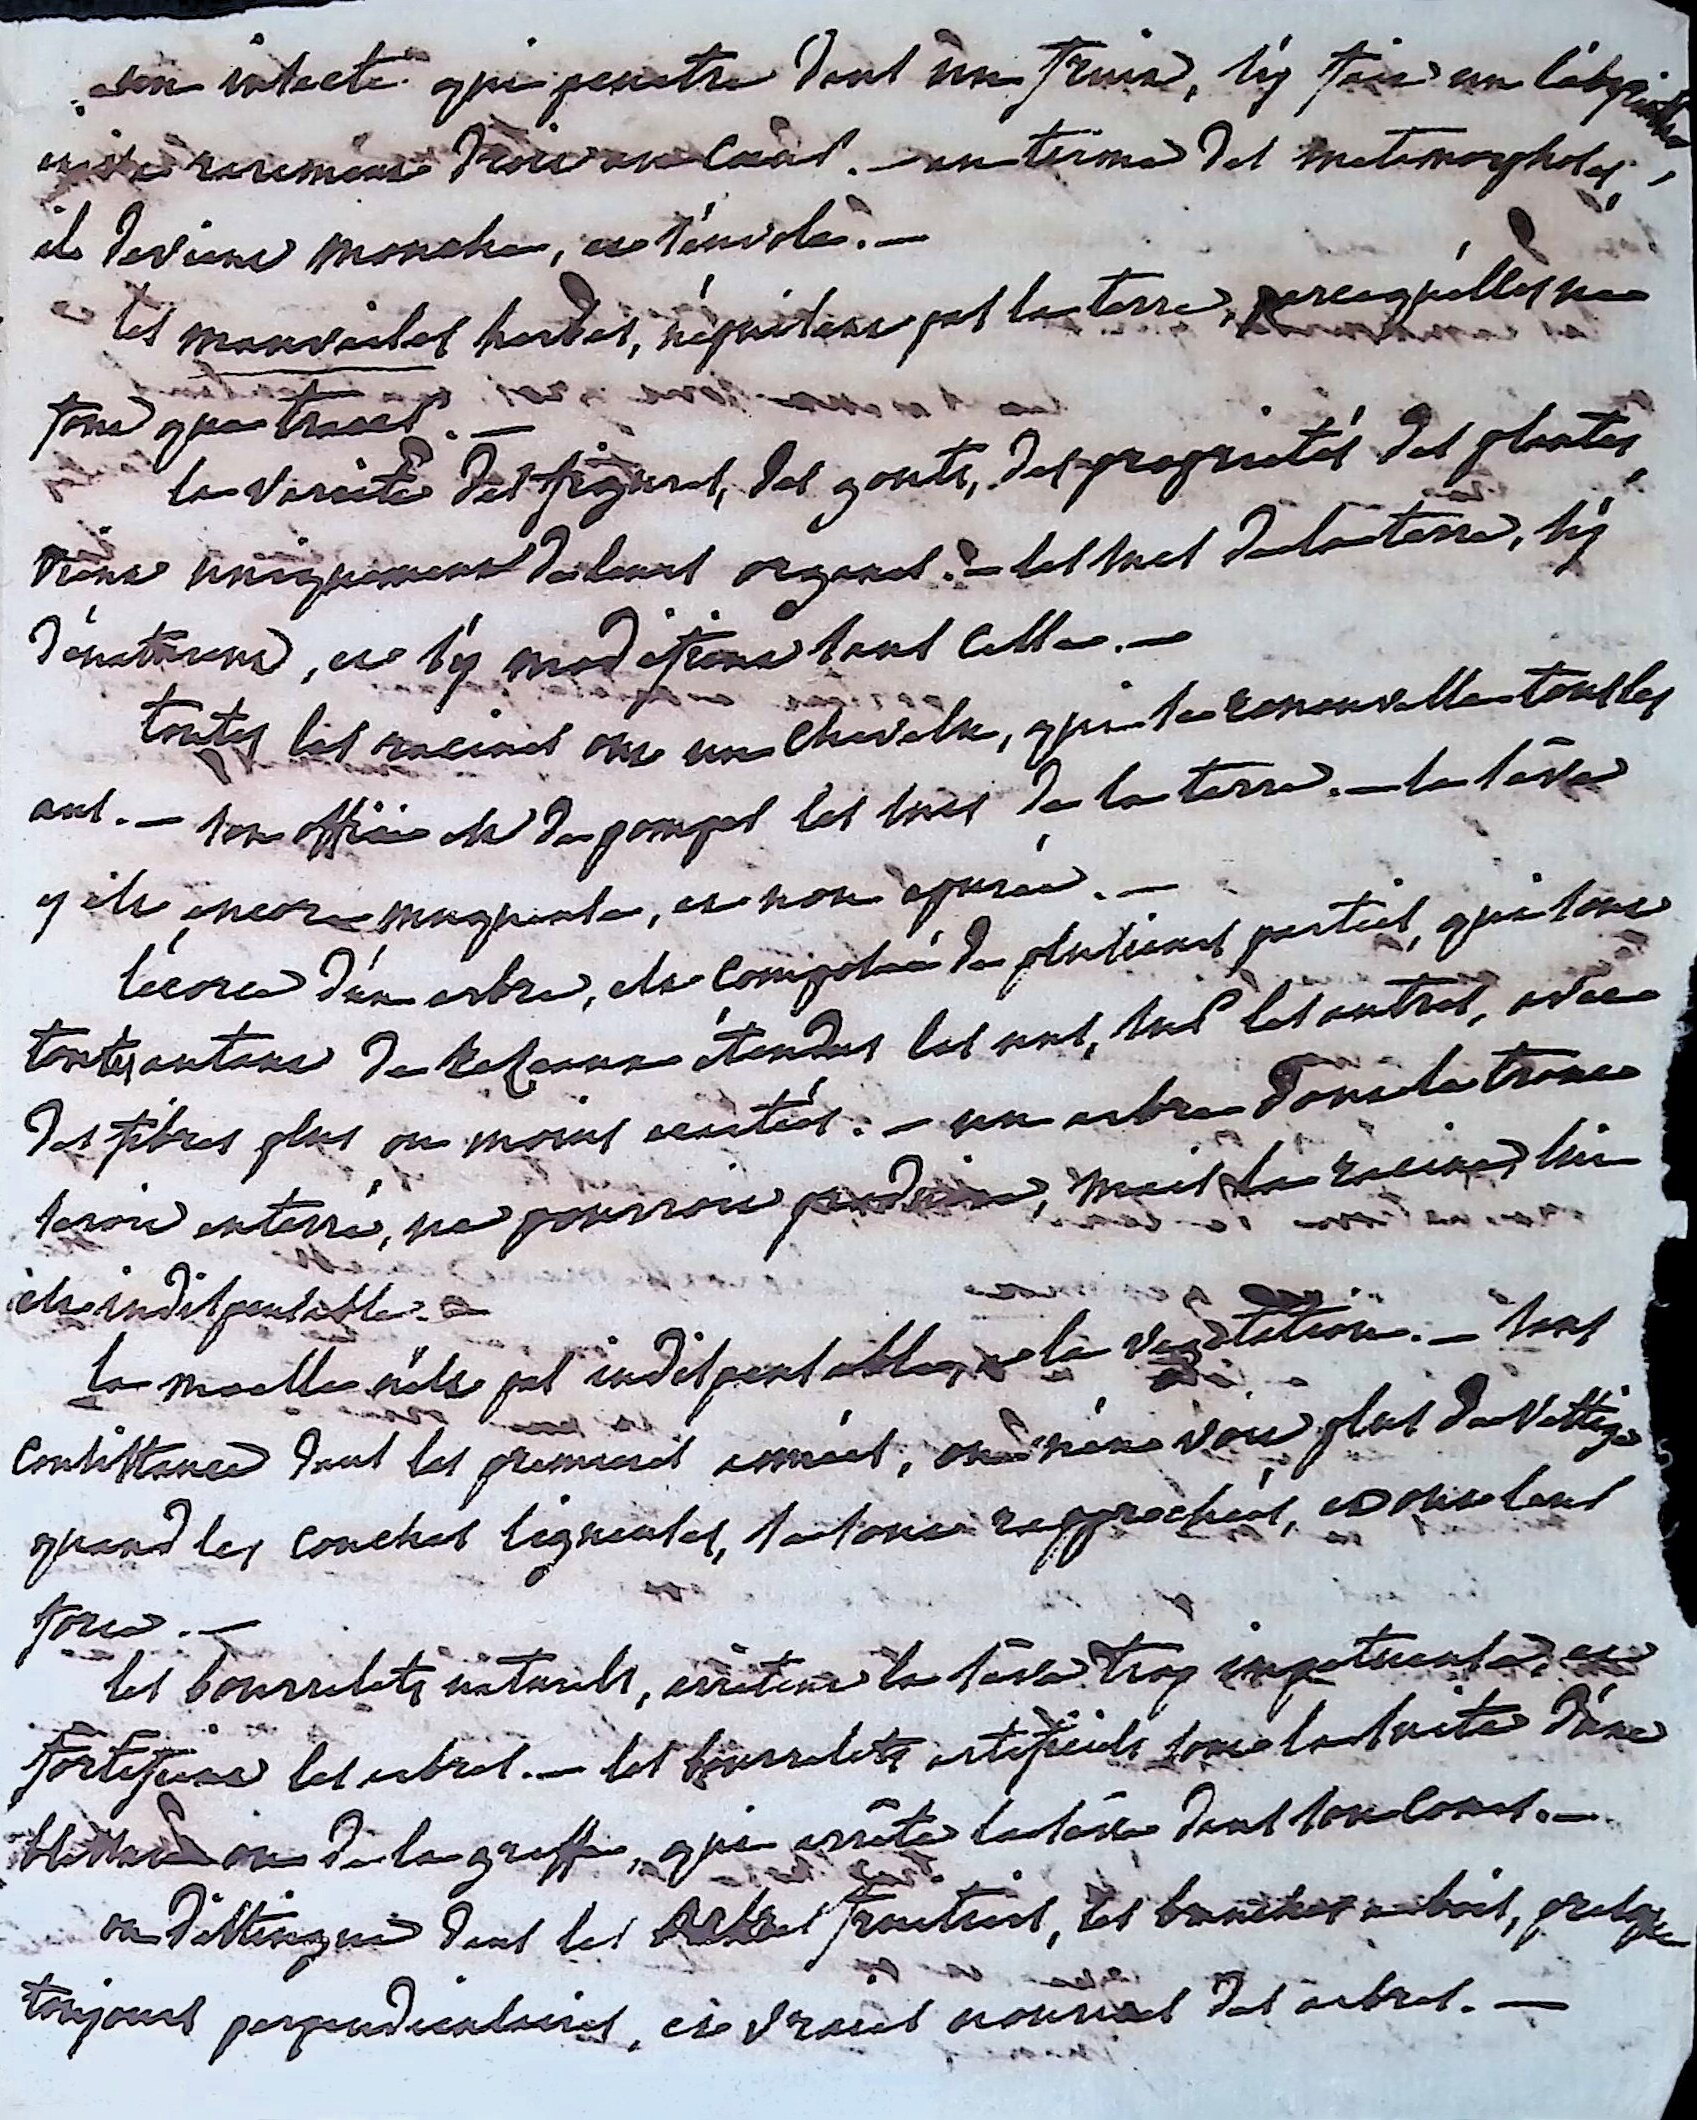 un insecte qui penetre dans un fruit, s'y fait un labyrinthe,
et va rarement droit au cœur. — au terme des metamorphoses,
il devient mouche, et s'envole. —
les mauvaises herbes, n'epuisent pas la terre, parcequ'elles ne
font que tracer. —
la varieté des figures, des gouts, des proprietés des plantes,
vient uniquement de leurs organes. — les sucs de la terre, s'y
dénaturent, et s'y modifient sans cesse. —
toutes les racines ont un chevelu, qui se renouvelle tous les
ans. — son office est de pomper les sucs de la terre. — la séve
y est encore muqueuse, et non epurée. —
l'écorce d'un arbre, est composée de plusieurs parties, qui sont
toutes autant de rezeaux étendus les uns, sur les autres, avec
des fibres plus ou moins ecartées. — un arbre dont le tronc
seroit enterré, ne pourroit produire, mais la racine lui
est indispensable. —
la moelle n'est pas indispensable, a la vegetation. — sans
consistance dans les premieres années, on n'en voit plus de vestige
quand les couches ligneuses, se sont rapprochées, et ont leur
force. —
les bourrelets naturels, arrêtent la séve trop impetueuse, et
fortifient les arbres. — les bourrelets artificiels sont la suite d'une
blessure ou de la greffe, qui arrête la séve dans son cours. —
on distingue dans les arbres fruitiers, les branches a bois, presque
toujours perpendiculaires, et vraies nourrices des arbres. —